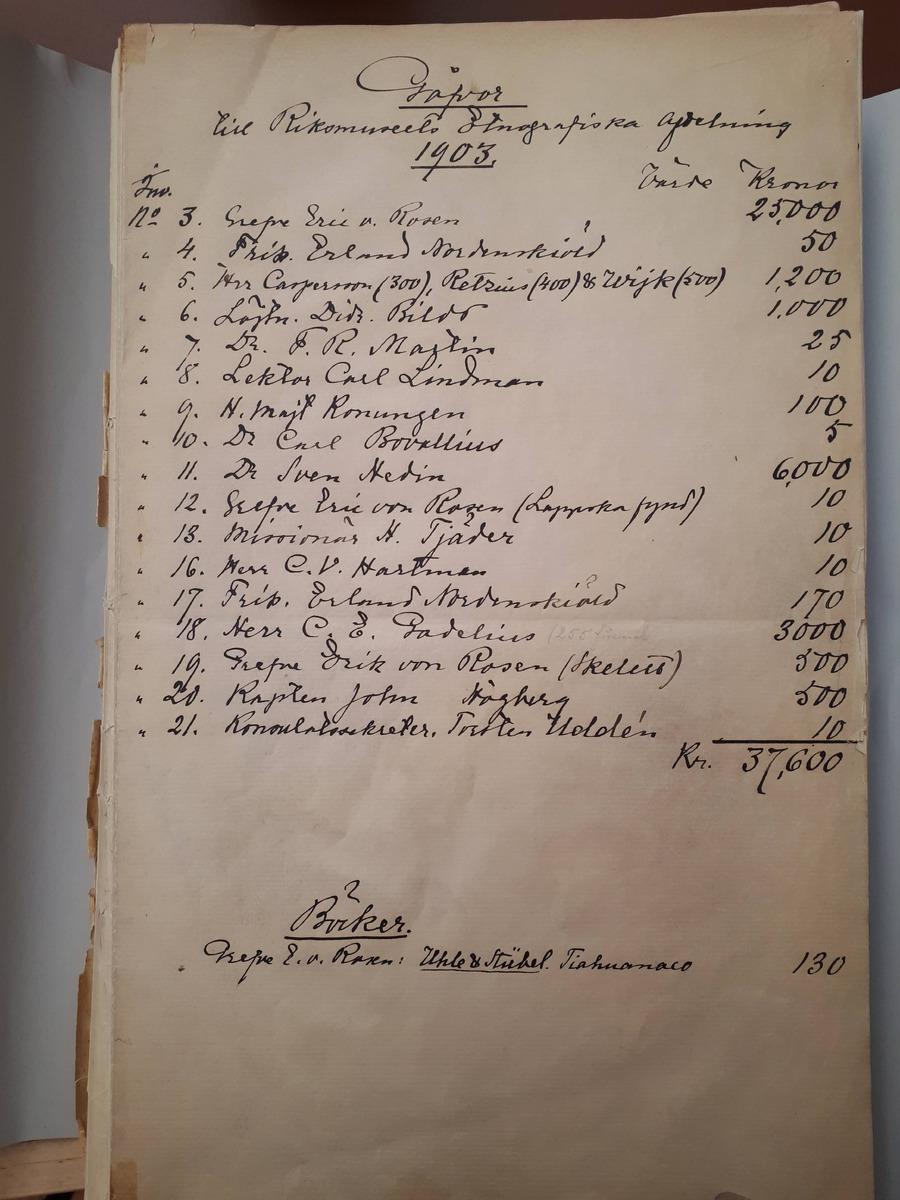 Gåfvor
till Riksmuseets Etnografiska Afdelning
1903.
Inv. Värde Kronor
No 3. Grefve Eric v. Rosen 25,000
" 4. Frih. Erland Nordenskiöld 50
" 5. Hrr Caspersson (300), Retzius (400) & Wijk (500) 1,200
" 6. Löjtn. Didr. Bildt 1,000
" 7. Dr. F. R. Martin 25
" 8. Lektor Carl Lindman 10
" 9. H. Majt Konungen 100
" 10. Dr Carl Bovallius 5
" 11. Dr Sven Hedin 6,000
" 12. Grefve Eric von Rosen (Lappska fynd) 10
" 13. Missionär H. Tjäder 10
" 16. Herr C. V. Hartman 10
" 17. Frih. Erland Nordenskiöld 170
" 18. Herr C. E. Gadelius (255 3000
" 19. Grefve Erik von Rosen (Skelett) 500
" 20. Kapten John Högberg 500
" 21. Konsulatssekreter. Torsten Uddén 10
Kr. 37,600
Böcker.
Grefve E. v. Rosen: Uhle & Stübel. Tiahuanaco 130